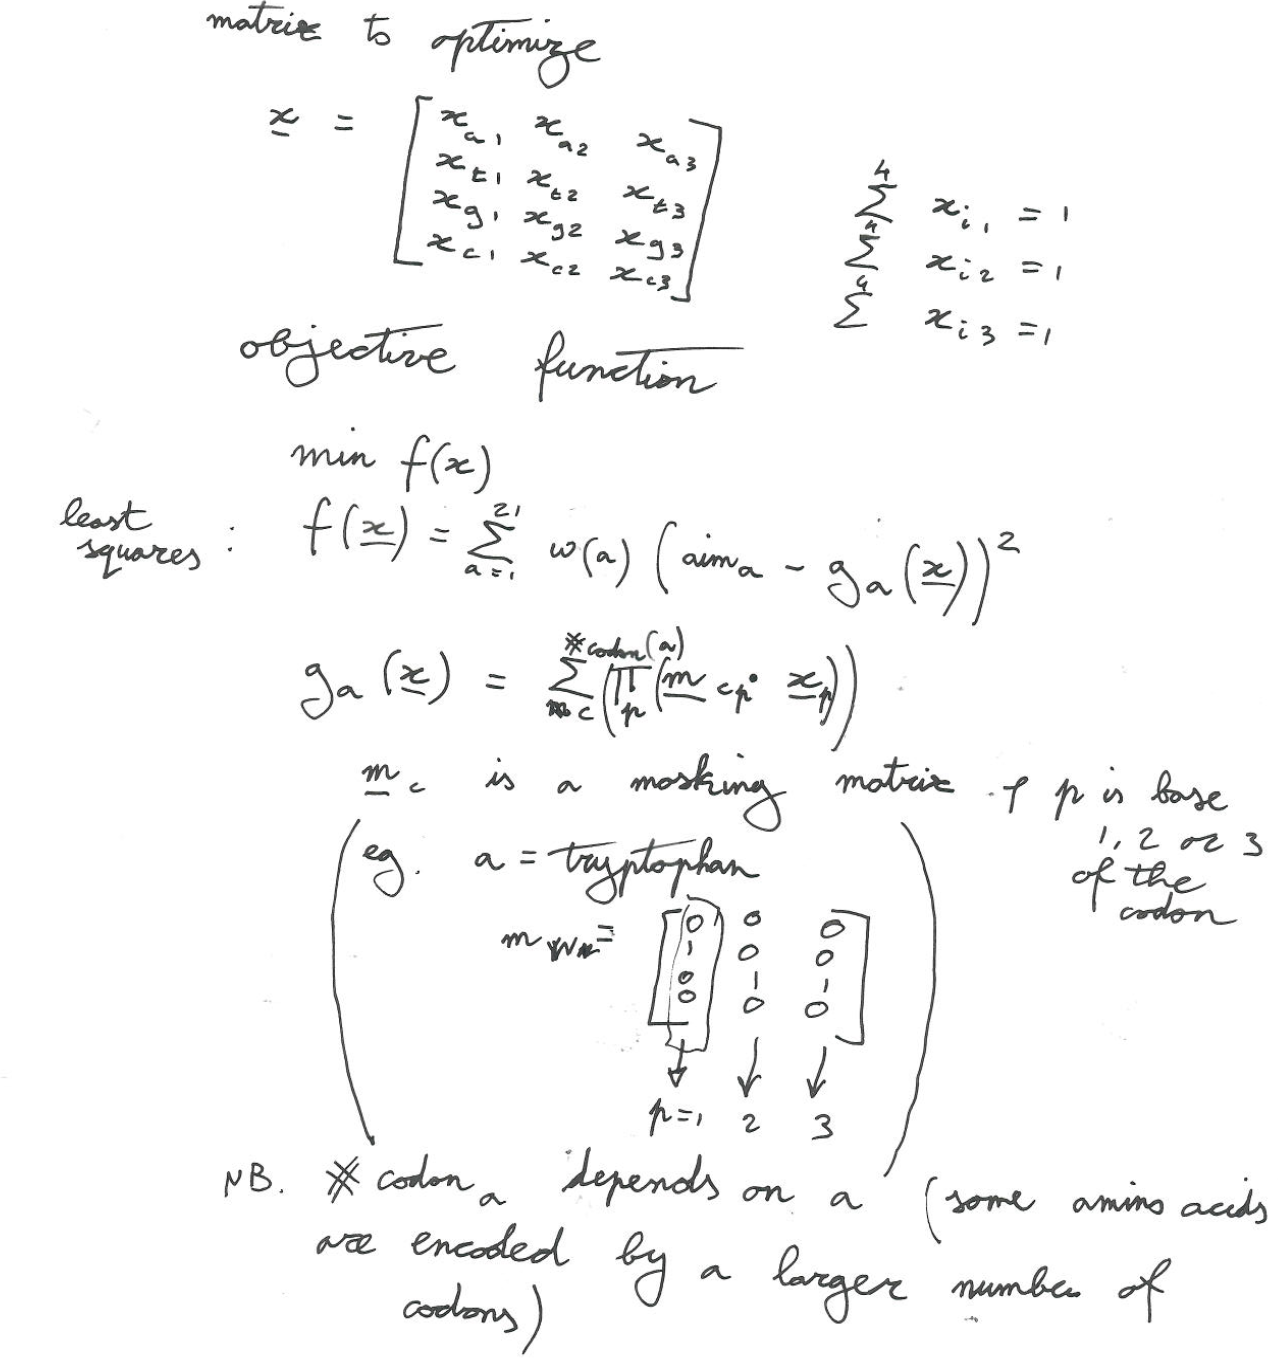 matrix to optimize
x = [ x_a1 x_a2 x_a3
x_t1 x_t2 x_t3
x_g1 x_g2 x_g3
x_c1 x_c2 x_c3 ]
4 Σ x_i1 = 1
4 Σ x_i2 = 1
4 Σ x_i3 = 1
objective function
min f(x)
least squares : f(x) = Σ_{a=1}^{21} w(a) (aim_a - g_a(x))^2
g_a(x) = Σ_c^{#codon(a)} (Π_p (m_cp · x_p))
m_c is a masking matrix & p is base
1, 2 or 3
of the
codon
(eg. a = tryptophan
m_W = [ 0 0 0
1 0 0
0 1 1
0 0 0 ]
p=1 2 3 )
NB. # codon_a depends on a (some amino acids
are encoded by a larger number of
codons)